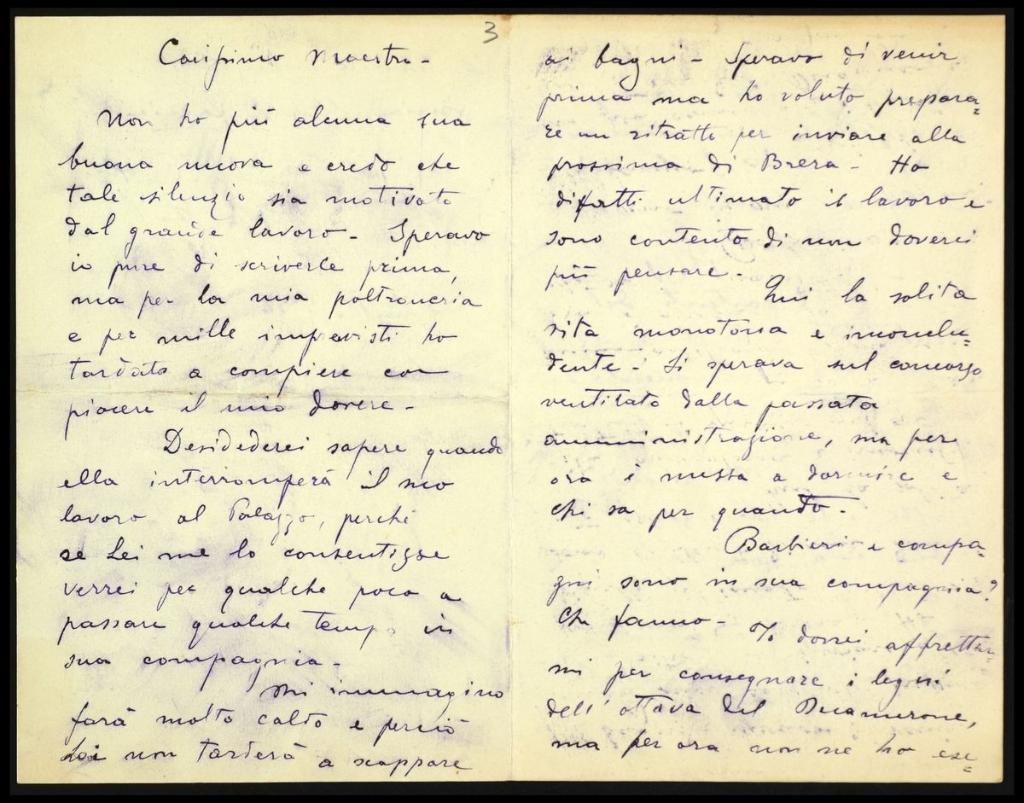 3
Carissimo Maestro -
Non ho più alcuna sua
buona nuova e credo che
tale silenzio sia motivato
dal grande lavoro - Speravo
io pure di scriverle prima,
ma per la mia poltroneria
e per mille imprevisti ho
tardato a compiere con
piacere il mio dovere -
Desidederei sapere quando
ella interromperà il suo
lavoro al Palazzo, perché
se Lei me lo consentisse
verrei per qualche poco a
passare qualche tempo in
sua compagnia -
Mi immagino
farà molto caldo e perciò
Lei non tarderà a scappare
ai bagni - Speravo di venir
prima ma ho voluto prepara=
re un ritratto per inviare alla
prossima di Brera - Ho
difatti ultimato il lavoro e
sono contento di non doverci
più pensare -
Qui la solita
vita monotona e inconclu=
dente - Si sperava sul concorso
ventilato dalla passata
amministrazione, ma per
ora è messa a dormire e
chi sa per quanto -
Barbieri e compa=
gni sono in sua compagnia?
Che fanno - Io dovrei affrettar=
mi per consegnare i legni
dell'ottava del Decamerone,
ma per ora non ne ho ese=